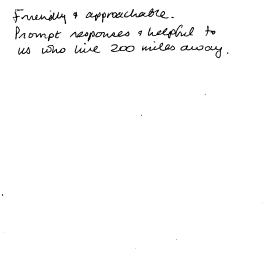 Friendly & approachable.
Prompt responses & helpful to
us who live 200 miles away.